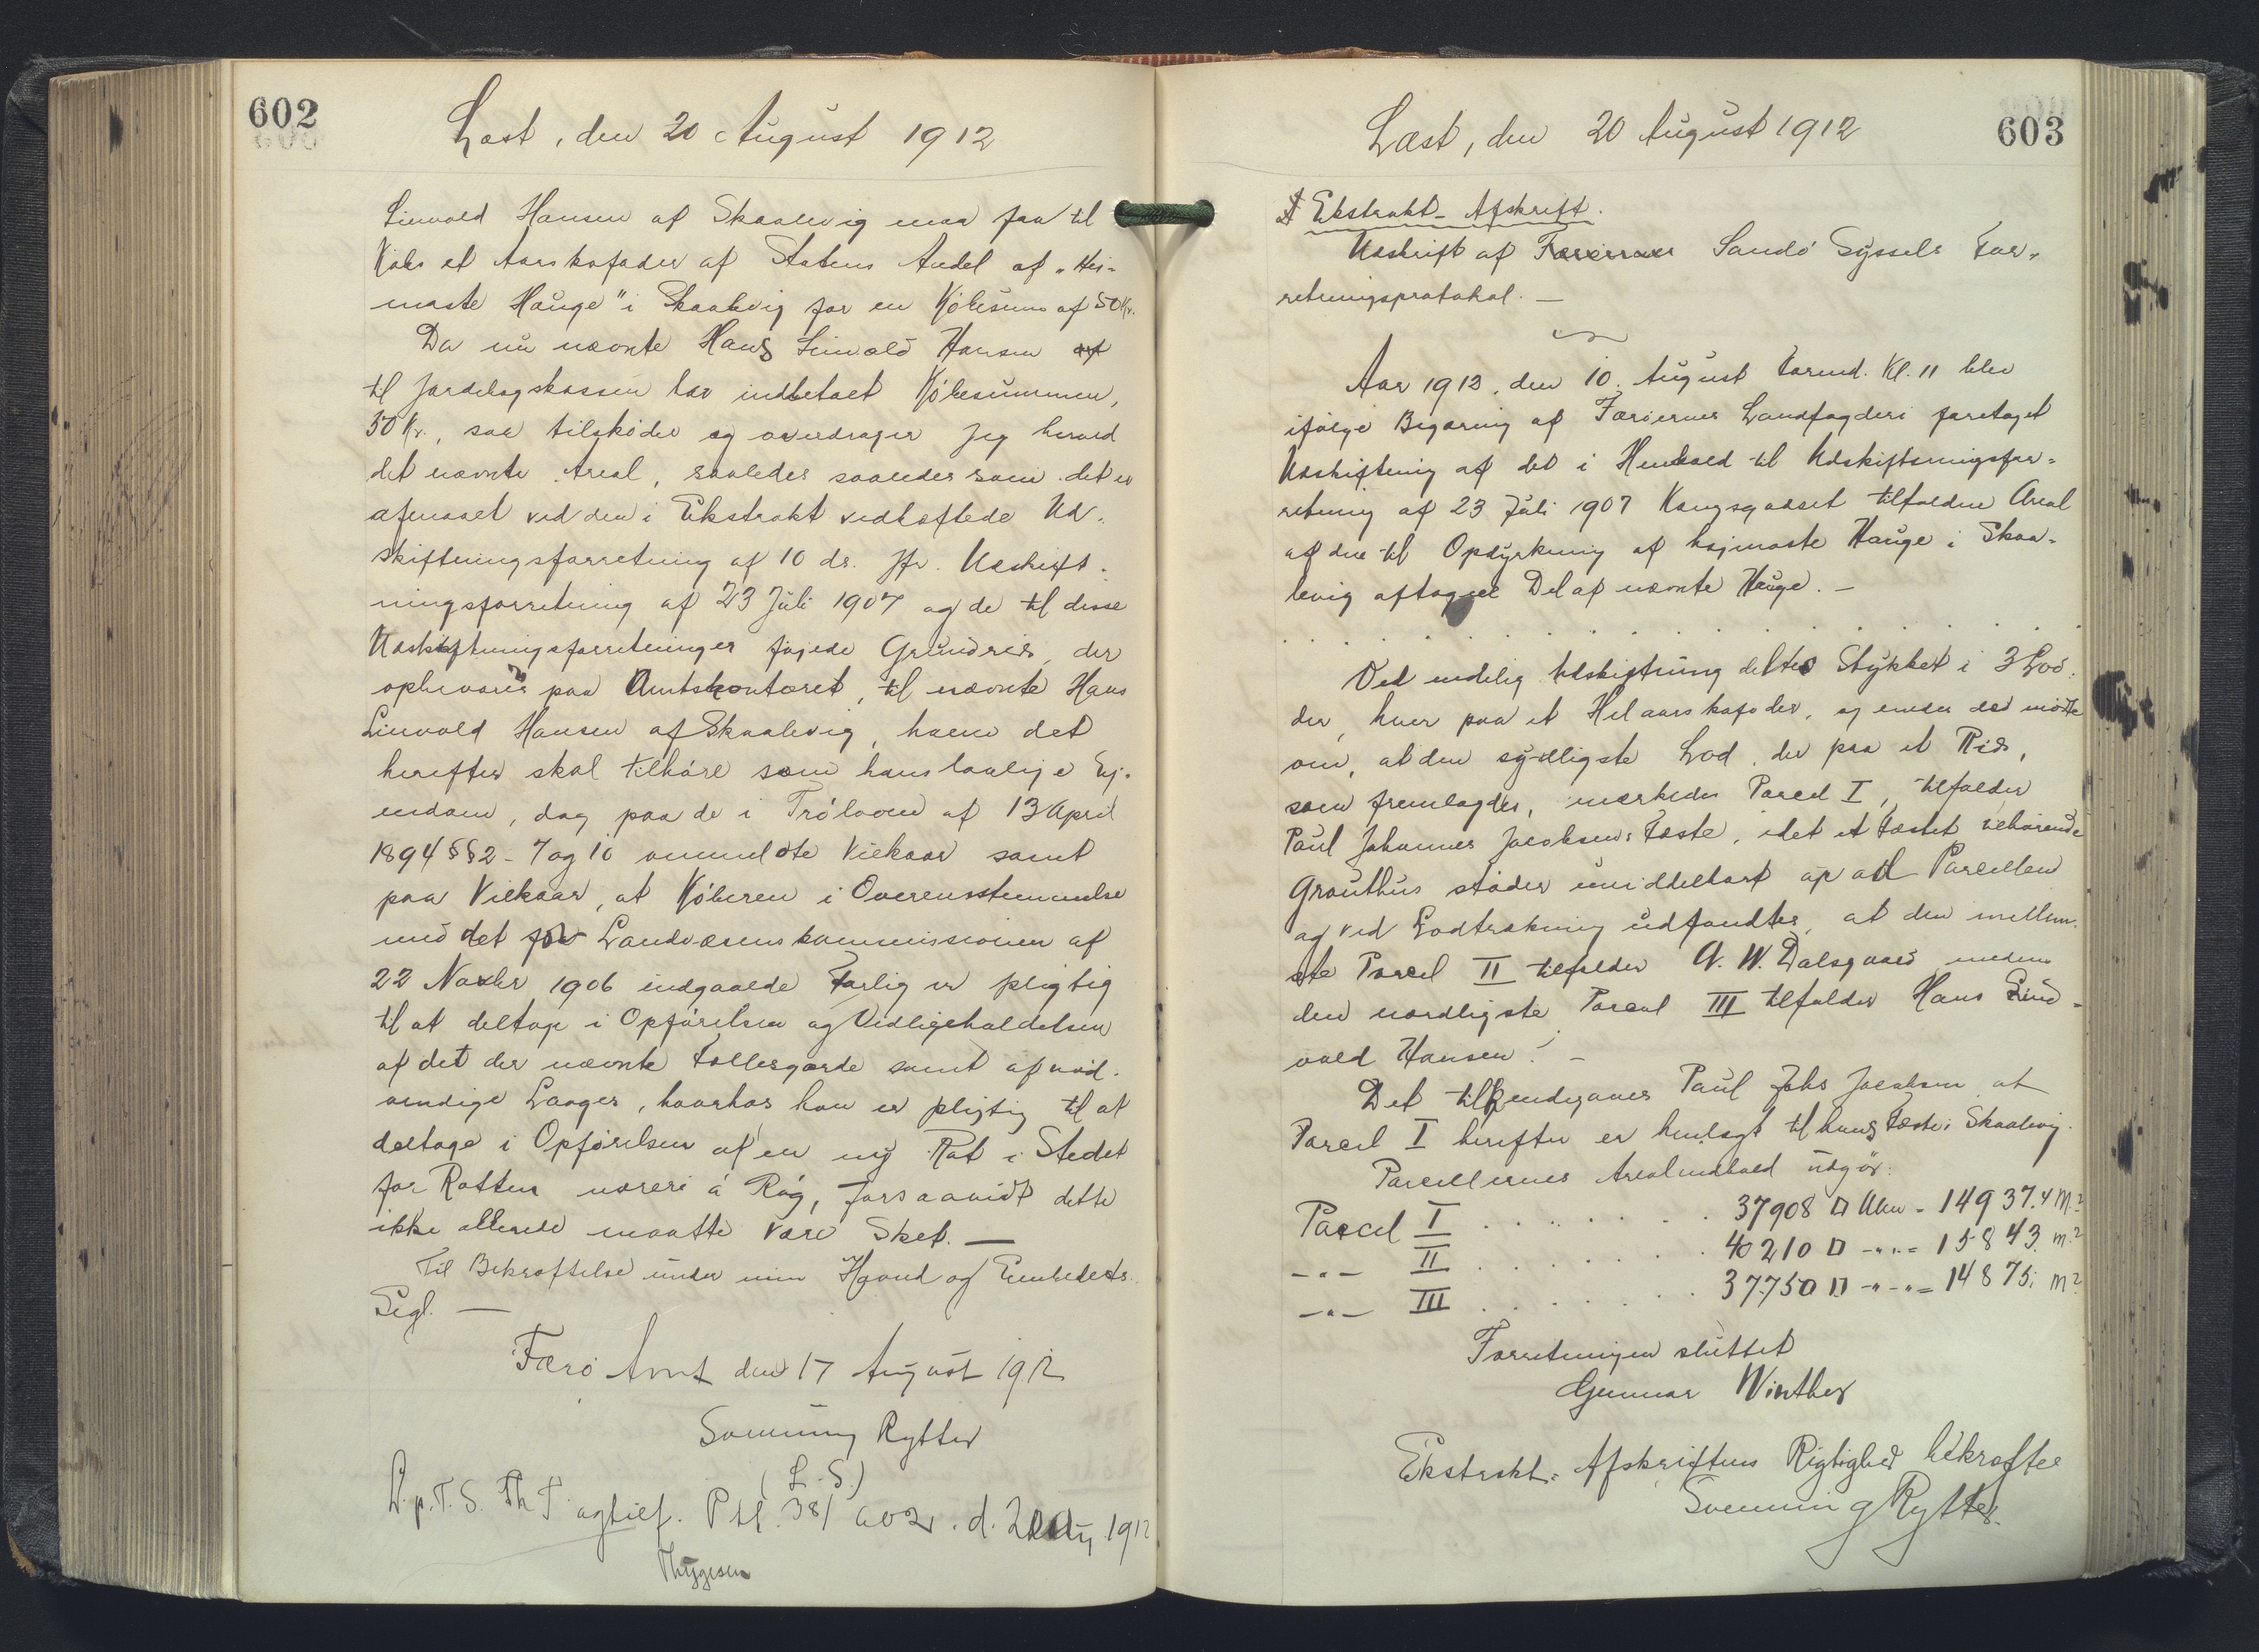 602
Læst, den 20 August 1912
Linvald Hansen af Skaalevig maa faa til
Købs et Aarskofoder af Statens Andel af „Hei-
maste Hauge" i Skaalevig for en Købesum af 50 Kr.
Da nu nævnte Hans Linvald Hansen af
til Jordebogskassen har indbetalt Købesummen,
50 Kr., saa tilskøder og overdrager jeg herved
det nævnte Areal, saaledes saaledes som det er
afmaalt ved den i Ekstrakt vedhæftede Ud-
skiftningsforretning af 10 ds. jfr. Udskift-
ningsforretning af 23 Juli 1907 og de til disse
Udskiftningsforretninger føjede Grundrids, der
opbevares paa Amtskontoret, til nævnte Hans
Linvald Hansen af Skaalevig, hvem det
herefter skal tilhøre som hans lovlige Ej-
endom, dog paa de i Frøloven af 13 April
1894 §§ 2 - 7 og 10 ommeldte Vilkaar samt
paa Vilkaar, at Køberen i Overensstemmelse
med det for Landvæsenskommissionen af
22 Novbr 1906 indgaaede Forlig er pligtig
til at deltage i Opførelsen og Vedligeholdelsen
af det der nævnte Fællesgærde samt af nød-
vendige Laager, hvorhos han er pligtig til at
deltage i Opførelsen af en ny Ræt i Stedet
for Rætten nøreri á Røg, forsaavidt dette
ikke allerede maatte være Sket. —
Til Bekræftelse under min Haand og Embeds
Segl. —
Færø Amt den 17 August 1912
Svenning Rytter
(L. S.)
L. p. T. S. Th T. aglief. Ptl. 381 d. 20 Aug 1912
Thygesen
Læst, den 20 August 1912
603
Ekstrakt-Afskrift.
Udskrift af Færøernes Sandø Syssels For-
retningsprotokol. —
Aar 1912, den 10. August Formd. Kl. 11 blev
ifølge Begæring af Færøernes Landfogderi foretaget
Udskiftning af det i Henhold til Udskiftningsfor-
retning af 23 Juli 1907 Kongsgodset tilfaldne Areal
af den til Opdyrkning af hejmaste Hauge i Skaa-
levig aftagne Del af nævnte Hauge. —
Ved endelig Udskiftning deltes Stykket i 3 Lod-
der, hver paa et Helaarskofoder, og enedes de mødte
om, at den sydligste Lod, der paa et Rids,
som fremlagdes, mærkedes Parcel I, tilfalder
Paul Johannes Jacobsens Fæste, idet et Fæstet tilhørende
Grouthus støder umiddelbart op ad Parcellen
og ved Lodtrækning udfandtes, at den mellem-
ste Parcel II tilfalder A. W. Dalsgaard medens
den nordligste Parcel III tilfalder Hans Lind-
vald Hansen. —
Det tilkendegaves Paul Johs Jacobsen at
Parcel I herefter er henlagt til hans Fæste i Skaalevig.
Parcellernes Arealindhold udgør:
Parcel I . . . . . . . 37908 □ Alen = 14937.4 M.²
-"- II . . . . . . . 40210 □ -"- = 15843 m.²
-"- III . . . . . . . 37750 □ -"- = 14875 m²
Forretningen sluttet
Gunnar Winther
Ekstrakt-Afskriftens Rigtighed bekræftes
Svenning Rytter.